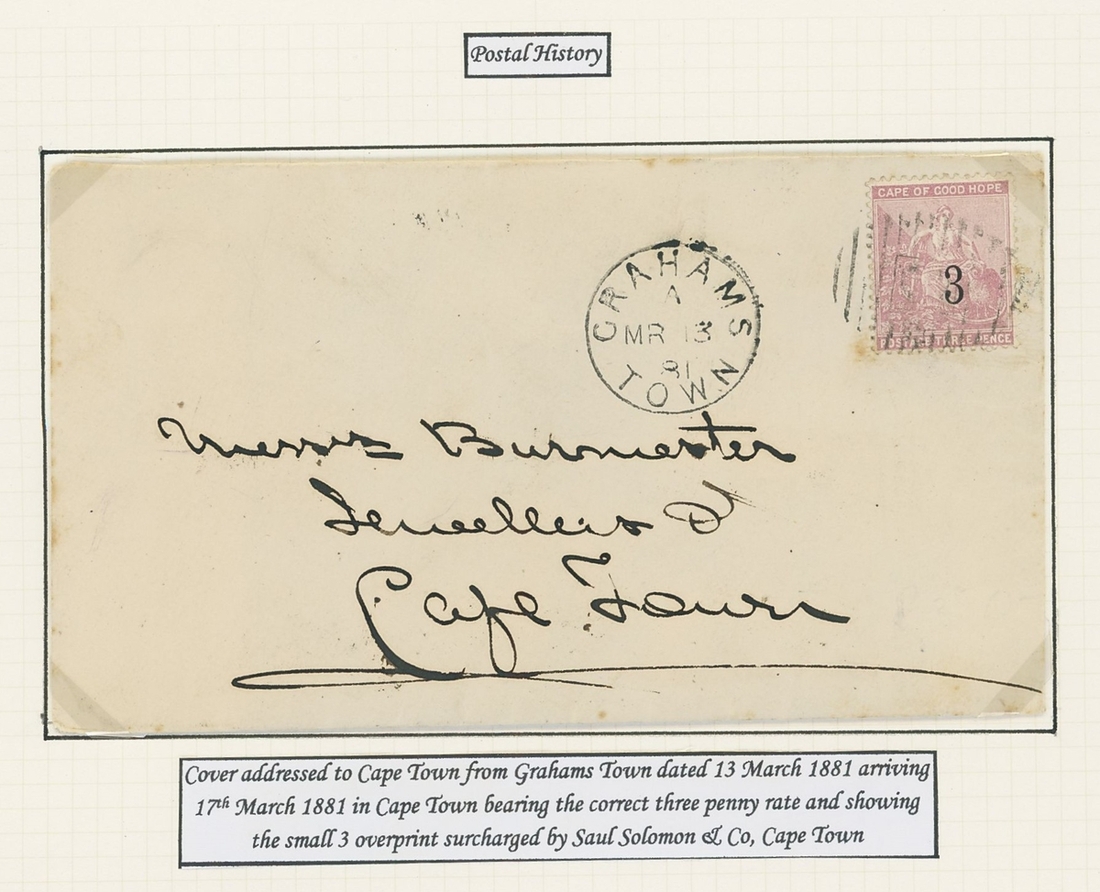 Postal History
CAPE OF GOOD HOPE
3
POSTAGE THREE PENCE
GRAHAMS
A
MR 13
81
TOWN
Messrs Burmester
Jewellers &
Cape Town
Cover addressed to Cape Town from Grahams Town dated 13 March 1881 arriving
17th March 1881 in Cape Town bearing the correct three penny rate and showing
the small 3 overprint surcharged by Saul Solomon & Co, Cape Town